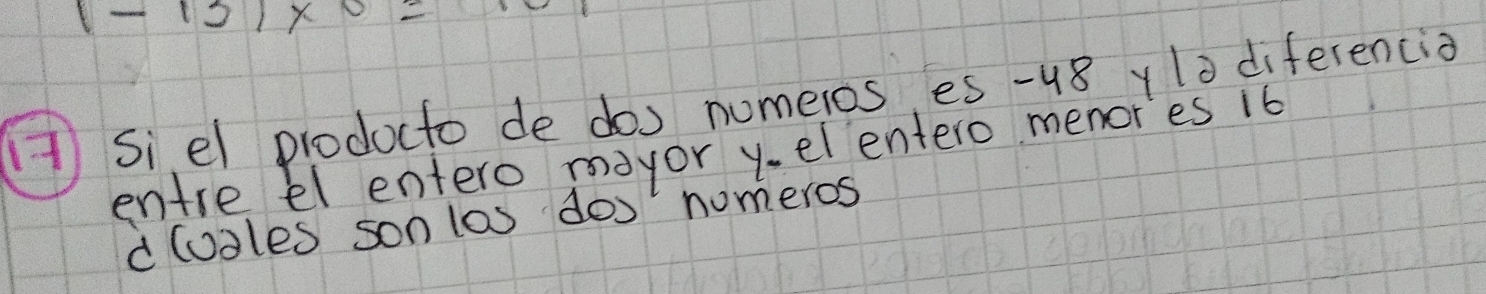 (-13) x 0 =
17 Si el producto de dos numeros es -48 y la diferencia
entre el entero mayor y el entero menor es 16
¿Cuales son los dos numeros